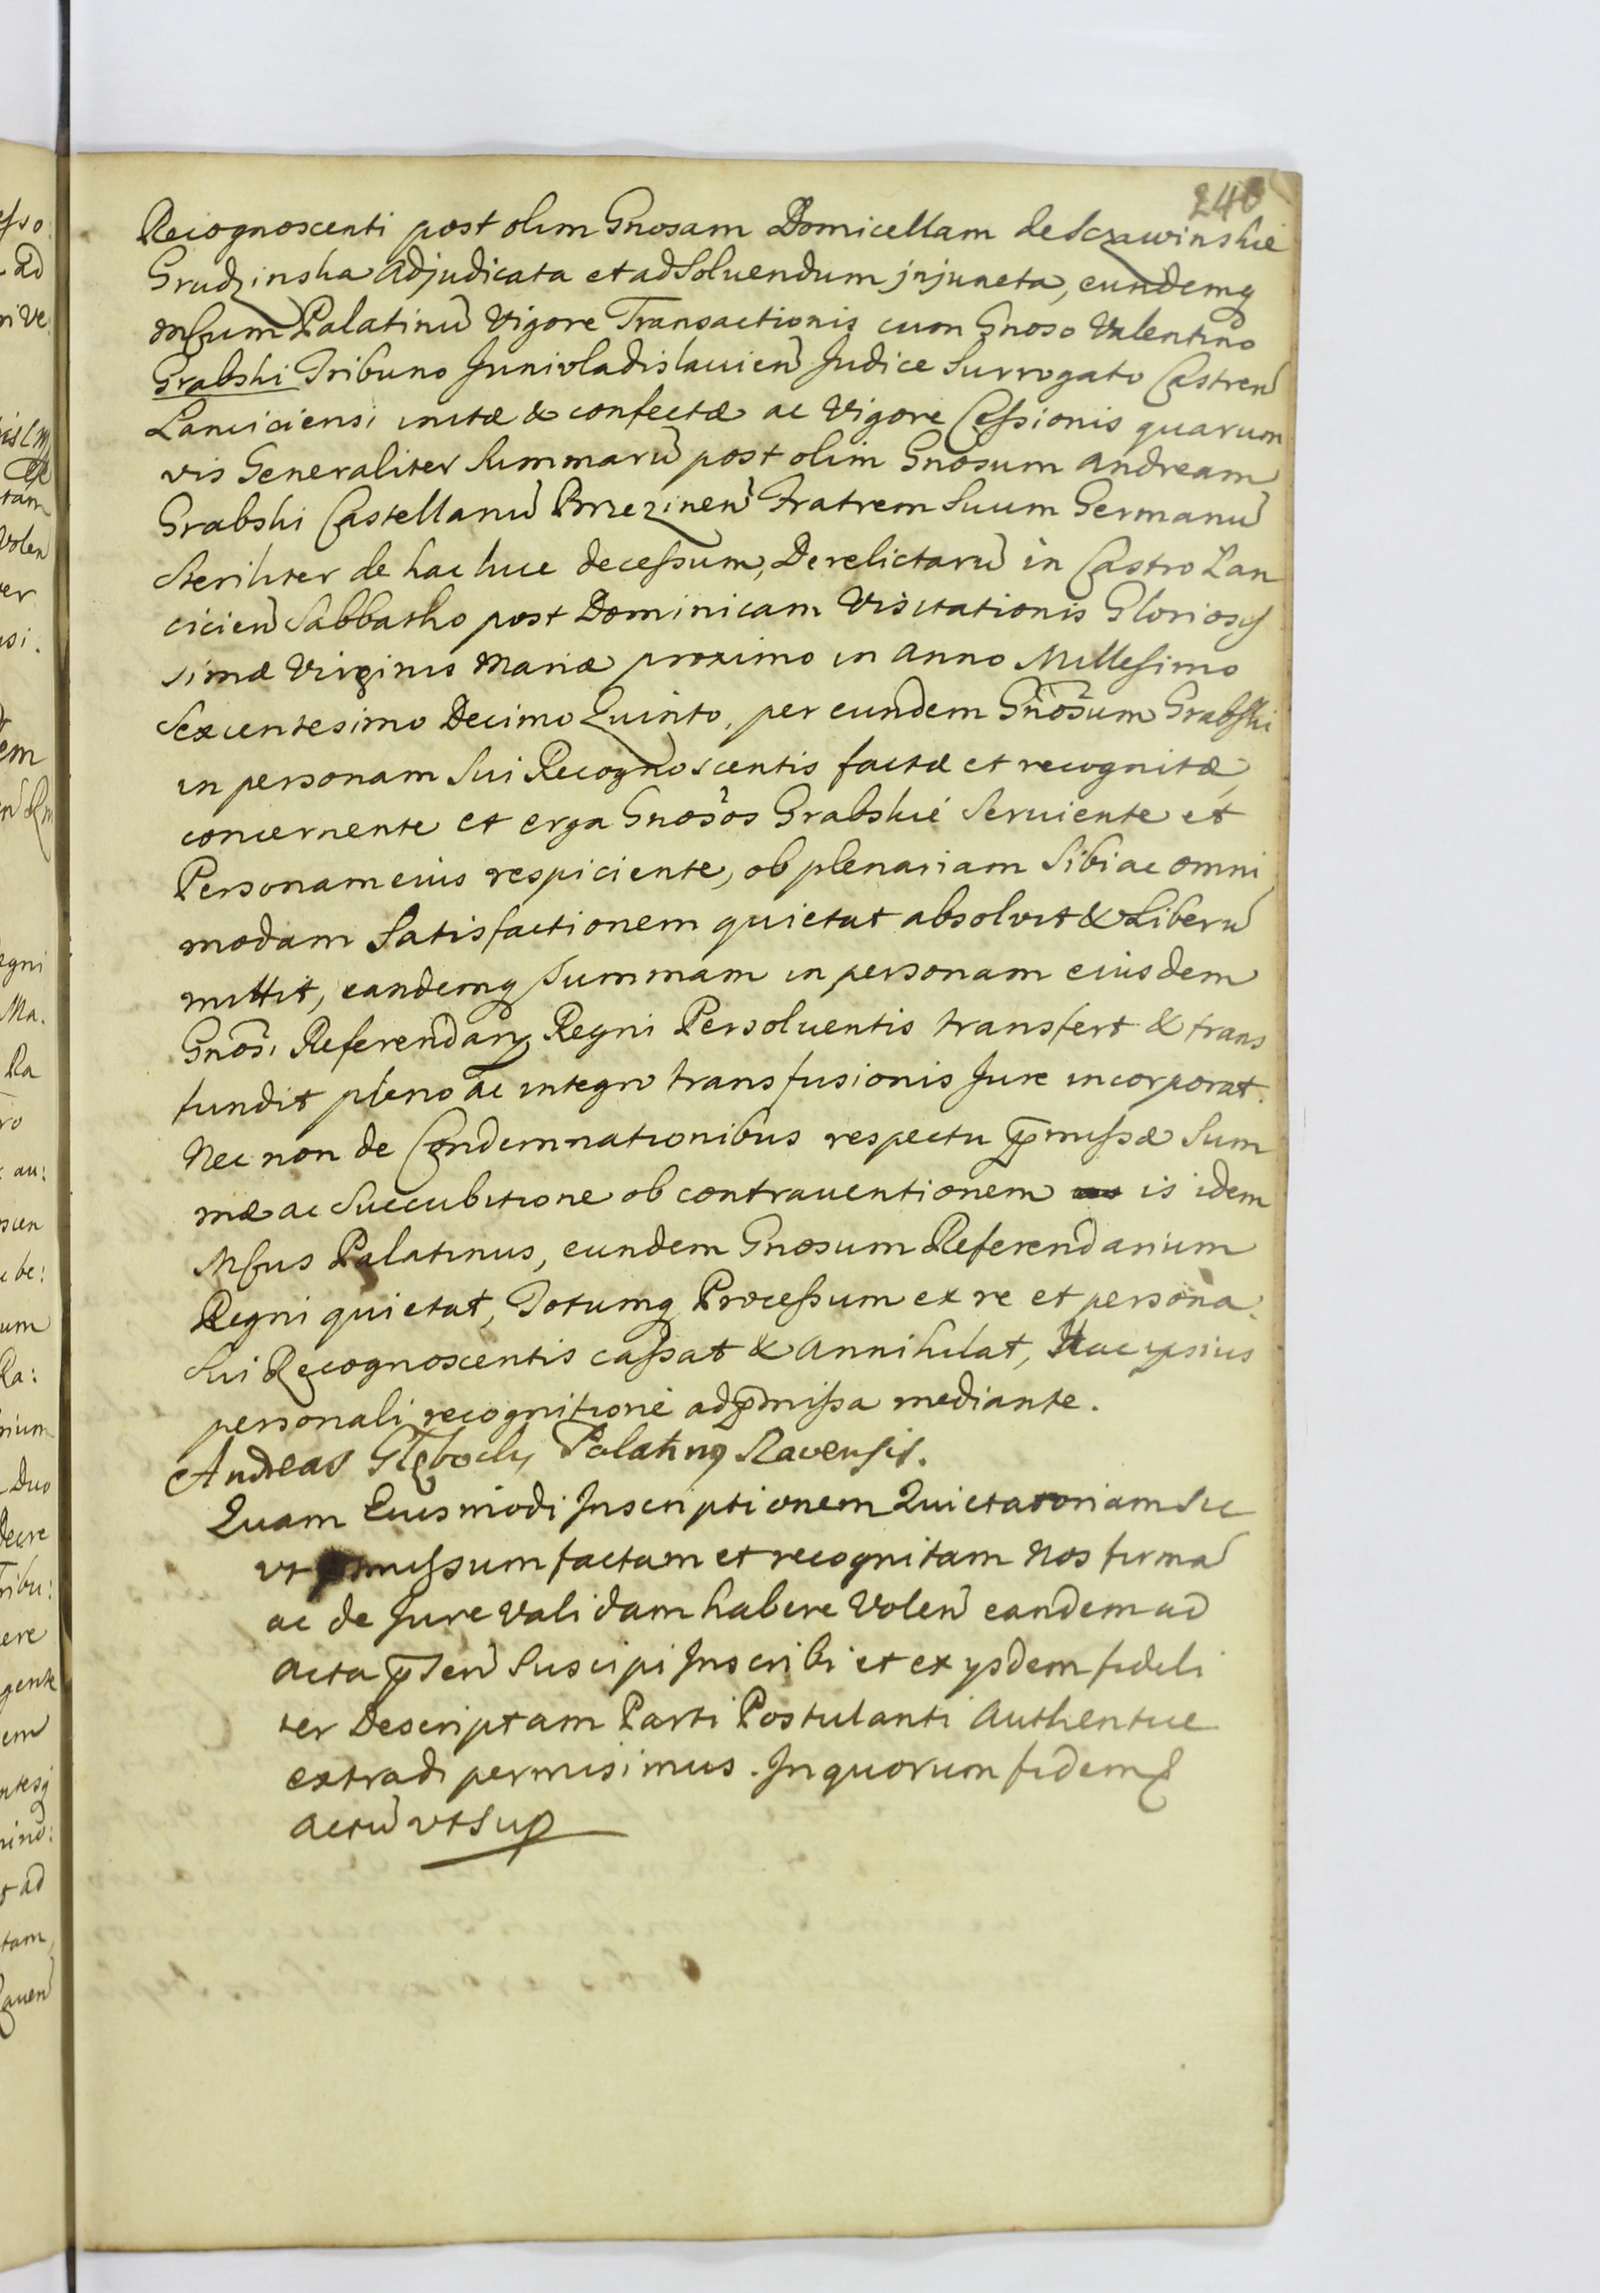 240
Recognoscenti post olim Gnosam Domicellam de Sczawinskie
Grudzinska Adjudicata et ad Soluendum jnjuncta, eundemq
Mfcum Palatinũ Vigore Transactionis cum Gnoso Valentino
Grabski Tribuno Junivladislauień Judice Surrogato Castreñ
Lanciciensi initæ & confectæ ac Vigore Cessionis quarum
vis Generaliter Summarũ post olim Gnosum Andream
Grabski Castellanũ Brzezineñ Fratrem Suum Germanũ
Steriliter de hac luce decessum, Derelictarũ in Castro Lan
cicień Sabbatho post Dominicam Visitationis Gloriosis
simæ Virginis Mariæ proximo in Anno Millesimo
Sexcentesimo Decimo Quinto, per eundem Gñosum Grabski
in personam Sui Recognoscentis factæ et recognitæ,
concernente et erga Gnosos Grabskie Seruiente et
Personam eius respiciente, ob plenariam Sibi ac omni
modam Satisfactionem quietat absolvit & Liberũ
mittit, eandemq Summam in personam eiusdem
Gnosi Referendarÿ Regni Persoluentis transfert & trans
fundit pleno ac integro transfusionis Jure incorporat.
Nec non de Condemnationibus respectu p̃missæ Sum
mæ ac Succubitione ob contrauentionem is idem
Mfcus Palatinus, eundem Gnosum Referendarium
Regni quietat, Totumq Processum ex re et persona
Sui Recognoscentis cassat & Annihilat, Hac ipsius
personali recognitione ad p̃missa mediante.
Andreas Glębocky Palatinq Ravensis.
Quam Eiusmodi Jnscriptionem Quietatoriam Sic
vt p̃missum factam et recognitam Nos firmã
ac de Jure validam habere Voleñ eandem ad
Acta p̃señ Suscipi Jnscribi et ex ijsdem fideli
ter Descriptam Parti Postulanti Authentice
extradi permisimus. Jn quorum fidem &
Actũ vt Sup